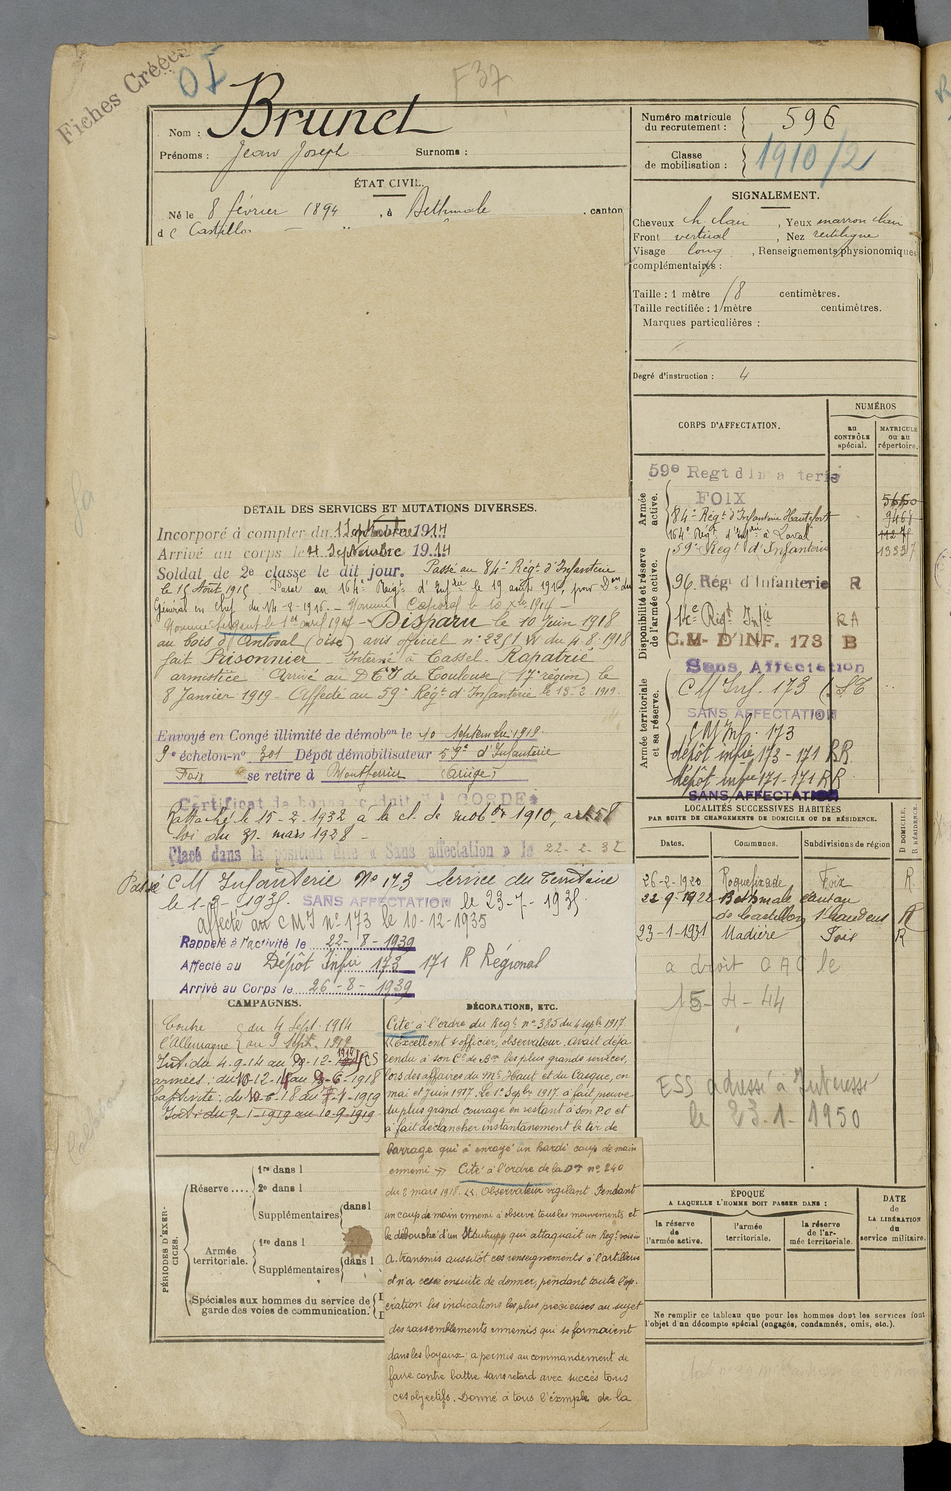 Fiches Créées
F37
Nom : Brunet
Prénoms : Jean Joseph Surnoms :
ÉTAT CIVIL.
Né le 8 février 1894, à Bethmale, canton
d e Castillon
Numéro matricule du recrutement : 596
Classe de mobilisation : 1910/2
SIGNALEMENT.
Cheveux ch clair, Yeux marron clair
Front vertical, Nez rectiligne
Visage long, Renseignements physionomiques
complémentaires :
Taille : 1 mètre 78 centimètres.
Taille rectifiée : 1 mètre centimètres.
Marques particulières :
Degré d'instruction : 4
DÉTAIL DES SERVICES ET MUTATIONS DIVERSES.
Incorporé à compter du 1914
Arrivé au corps le 4 Septembre 1914
Soldat de 2e classe le dit jour. Passé au 84e Régt d'Infanterie
le 15 Août 1915 Passé au 164e Régt d'Infrie le 19 août 1916, pour Don du
Général en chef du 14-8-1916. - Nommé Caporal le 10 Xbre 1914 -
Nommé Sergent le 1er avril 1917 - Disparu le 10 Juin 1918
au bois d'Antoval (oise) avis officiel n° 22 du 4.8.1918
fait Prisonnier - Interné à Cassel. Rapatrié
armistice Arrivé au D.T.I de Toulouse (17e région) le
8 Janvier 1919 - Affecté au 59e Régt d'Infanterie le 13-2-1919.
Envoyé en Congé illimité de démobon le 10 Septembre 1919
9e échelon - n° 301 Dépôt démobilisateur 59e d'Infanterie
Foix se retire à Montferrier (Ariège)
Certificat de bonne conduite ACCORDÉ
Rattaché le 15-2-1932 à la cl. de mobon 1910, art 58
loi du 31 mars 1928 -
Placé dans la position dite « Sans affectation » le 22-2-32
Passé C M Infanterie N° 173 Service du Territoire
le 1-3-1935. SANS AFFECTATION le 23-7-1935
affecté au C M I n° 173 le 10-12-1935
Rappelé à l'activité le 22-8-1939
Affecté au Dépôt Infie 173 171 R Régional
Arrivé au Corps le 26-8-1939
CORPS D'AFFECTATION.
NUMÉROS
au contrôle spécial.
MATRICULE ou au répertoire.
Armée active.
59e Regt d'Infanterie
FOIX
84e Régt d'Infanterie Hautefort
164e Régt d'Infrie à Laval
59e Régt d'Infanterie
Disponibilité et réserve de l'armée active.
96. Régt d'Infanterie R
14e Régt Infie RA
C.M- D'INF. 173 B
Sans Affectation
Armée territoriale et sa réserve.
C M Inf. 173 (ST
SANS AFFECTATION
C M Inf. 173
dépôt infie 173 - 171 RR.
dépôt infie 171 - 171 RR
SANS AFFECTATION
LOCALITÉS SUCCESSIVES HABITÉES
PAR SUITE DE CHANGEMENTS DE DOMICILE OU DE RÉSIDENCE.
Dates. Communes. Subdivisions de région D DOMICILE. R RÉSIDENCE.
26-2-1920 Roquefixade Foix R
22-9-1922 Bethmale canton
de Castillon St Gaudens R
23-1-1931 Madière Foix R
a droit CAC le
15-4-44
ESS adressé à Intéressé
le 23.1-1950
CAMPAGNES.
Contre du 4 Sept. 1914
l'Allemagne au 9 Sept. 1919
DÉCORATIONS, ETC.
Cité à l'ordre du Régt n° 385 du 4 septe 1917
"Excellent s/officier, observateur. Avait déjà
rendu à son Ct de Bon les plus grands services,
lors des affaires du Mt Haut et du Casque, en
mai et juin 1917. Le 1er Septe 1917. a fait preuve
du plus grand courage en restant à son P.O et
a fait déclancher instantanément le tir de
barrage qui a enrayé un hardi coup de main
ennemi » Cité à l'ordre de la Don n° 240
du 8 mars 1918. « Observateur vigilant. Pendant
un coup de main ennemi a observé tous les mouvements et
le débouché d'un Stosstrupp qui attaquait un Regt voisin
A transmis aussitôt ces renseignements à l'artillerie
et n'a cessé ensuite de donner, pendant toute l'op-
ération les indications les plus précieuses au sujet
des rassemblements ennemis qui se formaient
dans les boyaux ; a permis au commandement de
faire contre battre sans retard avec succès tous
ces objectifs. Donné à tous l'exemple de la
PÉRIODES D'EXERCICES.
Réserve....
1re dans l
2e dans l
Supplémentaires dans l
Armée territoriale.
1re dans l
Supplémentaires dans l
Spéciales aux hommes du service de
garde des voies de communication.
ÉPOQUE
A LAQUELLE L'HOMME DOIT PASSER DANS :
la réserve de l'armée active.
l'armée territoriale.
la réserve de l'armée territoriale.
DATE
DE
LA LIBÉRATION
du
service militaire.
Ne remplir ce tableau que pour les hommes dont les services font
l'objet d'un décompte spécial (engagés, condamnés, omis, etc.).